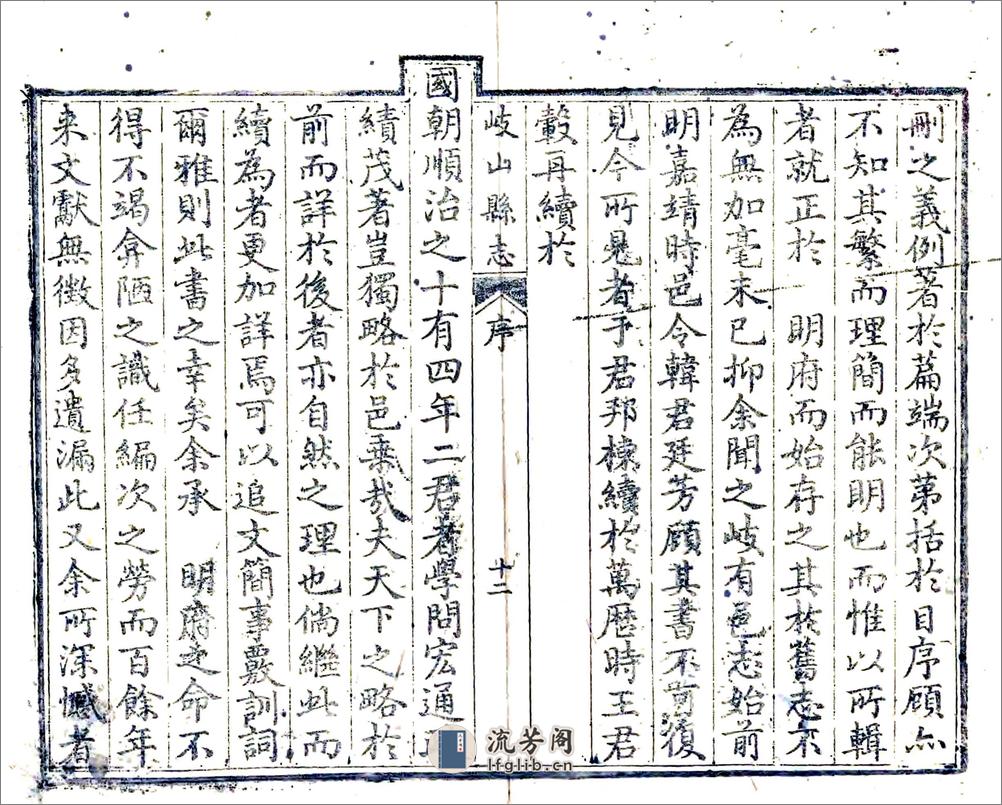 刪之義例著於篇端次第括於目序顧亦
不知其繁而理簡而能明也而惟以所輯
者就正於　明府而始存之其於舊志不
為無加毫末已抑余聞之岐有邑志始前
明嘉靖時邑令韓君廷芳顧其書不可復
見今所見者于君邦棟續於萬歷時王君
轂再續於
岐山縣志
序
十二
國朝順治之十有四年二君者學問宏通
績茂著豈獨略於邑乗哉夫天下之略於
前而詳於後者亦自然之理也倘繼此而
續為者更加詳焉可以追文簡事覈訓詞
爾雅則此書之幸矣余承　明府之命不
得不竭弇陋之識任編次之勞而百餘年
来文獻無徴因多遺漏此又余所深憾者
流芳阁
lfglib.cn